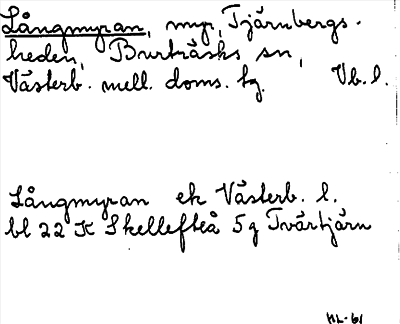 Långmyran, myr, Tjärnbergs-
heden, Burträsks sn,
Västerb. mell. doms. tg. Vb. l.
Långmyran ek Västerb. l.
bl 22 K Skellefteå 5 g Tvärtjärn
HL-61